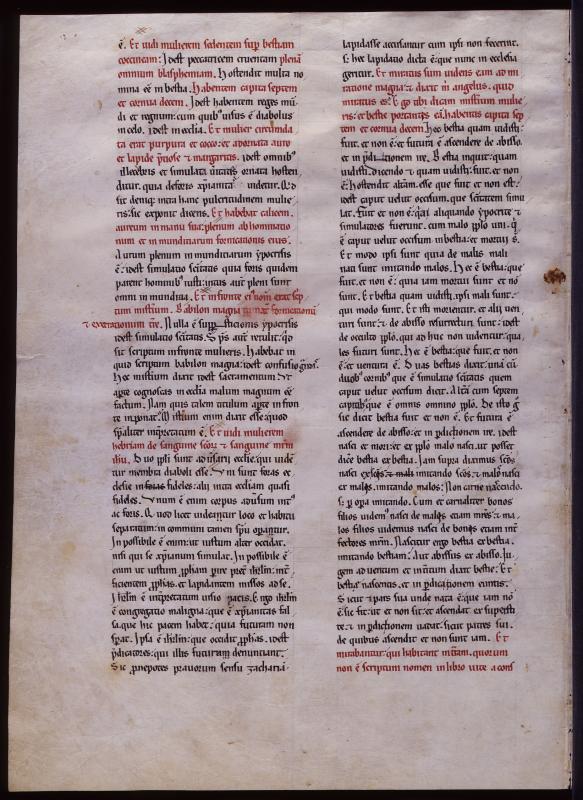 ē. Et uidi mulierem sedentem sup bestiam
coccineam: Idest peccatricem cruentam plenā
omnium blasphemiam. Hostendit multa no
mina eē in bestia. habentem capita septem
et cornua decem. Idest habentem reges mū
di et regnum: cum quib' usus ē diabolus
in celo. idest in ecclia. Et mulier circumda
ta erat purpura et cocco: et adornata auro
et lapide p̄tioso & margaritis. idest omnib'
illecebris et simulata ueritatis ornata hosten
ditur. quia deforis xp̄ianitas uidetur. Qd
sit deniq; intra hanc pulcritudinem mulie
ris: sic exponit dicens. Et habebat calicem
aureum in manu sua: plenum abhominatio
num et in munditiarum fornicationis eius.
Aurum plenum in munditiarum ypocrisis
ē: idest simulatio sc̄itatis quia foris quidem
parent hominib' iusti: intus aut pleni sunt
omni in munditia. Et in fronte ei' nom̄ erat scrip
tum misterium. Babilon magna mater fornicationū
& execrationum tre. Nulla ē supstitionis ypocrisis
idest simulatio sc̄itatis. Sps aut retulit. qd
sit scriptum in fronte mulieris. Habebat in
quid scriptum babilon magna: idest confusio
Hoc misterium dixit idest sacramentum. Ut
apte cognoscas in ecclia malum magnum eē
factum. Nam quis talem titulum apte in fron
te inponat. Misterium enim dixit esse: quod
spaliter interpretatum ē. Et uidi mulierem
hebriam de sanguine scor & sanguine mrm
ihu. Duo ppli sunt aduersarii ecclie: qui uiden
tur membra diaboli esse. Unum sunt foras ec
clesie in foras fideles: alii intra eccliam quasi
fideles. Unum ē enim corpus aduersum intus
ac foris. Quod licet uideantur loco et habitu
separatum: in communi tamen spu operantur.
In possibile ē enim: ut iustum alter occidat.
nisi qui se xp̄ianum simulat. In possibile ē
enim ut iustum pplham pire pret ihrlm: int
ficientem pphas. et lapidantem missos ad se.
Ihrlm ē interpretatum uisio pacis. Ergo ihrlm
ē congregatio maligna: que ē xp̄ianitas fal
sa. que hic pacem habet: quia futuram non
sperat. Ipsa ē ihrlm: que occidit pphas. idest
p̄dicatores: qui illis futuram denuntiant.
Sic pnepotes prauorum sensu zacharia
lapidasse accusantur cum ipsi non fecerint.
s: hec lapidatio dicta ē: que nunc in ecclesia
geritur. Et miratus sum uidens eam ad mi
ratione magna: & dixit m̄ angelus. quid
miratus es? Ego tibi dicam misterium mulie
ris: et bestie portantis eā. habentis capita sep
tem et cornua decem. Hec bestia quam uidisti:
fuit. et non ē: et futura ē ascendere de abisso.
et in pditionem ire. Bestia inquit: quam
uidisti. Dicendo & quam uidisti: fuit. et non
ē: hostendit alteram. esse que fuit et non est:
idest caput uelut occisum. que sc̄itatem simu
lat. Fuit et non ē: qai aliquando ypocrite &
simulatores fuerunt. cum malo pplo uni. q
ē caput uelut occisum in bestia: et mortui st.
Et modo ipsi sunt quia de malis mali
nati sunt imitando malos. Hec ē bestia: que
fuit. et non ē: quia iam mortui sunt et nō
sunt. Et bestia quam uidisti. ipsi mali sunt:
qui modo sunt. Et isti morientur. et alii uen
turi sunt: & de abisso resurrecturi sunt: idest
de occulto pplo. qui ad huc non uidentur: qua
les futuri sunt. Hec ē bestia: que fuit. et non
ē: et uentura ē. Duas bestias dixit. una cū
duob' cornib' que ē simulatio sc̄itatis quem
caput uelut occisum dixit. Altera cum septem
capitib' que ē omnis omnino pplo. De ista q
sic dicit bestia fuit et non ē. Et futura ē
ascendere de abisso: et in pditionem ire. idest
nasci et mori: et ex pplo malo nasci. ut posset
dicere bestia ex bestia. Iam supra diximus scos
nasci ex scis: & mali imitando scos: & malo nasci
ex malis. imitando malos: Non carne nascendo.
s: p opera imitando. Cum et carnaliter bonos
filios uidem' nasci de malis etiam mrēs: & ma
los filios uidemus nasci de bonis etiam int
fectores mrm. Nascitur ergo bestia ex bestia.
imitando bestiam. Aut abissus ex abisso. Iu
gem aduentum et interitum dixit bestie: Et
bestia nascentis. et in pditionem euntis:
Sicut & pars sua unde nata ē: que iam nō
ē: sic fit: ut et non sit: et ascendat et supersti
te: & in pditionem uadat: sicut patres sui.
de quibus ascendit et non sunt iam. Et
mirabantur: qui habitant in terram. quorum
non ē scriptum nomen in libro uite a cons